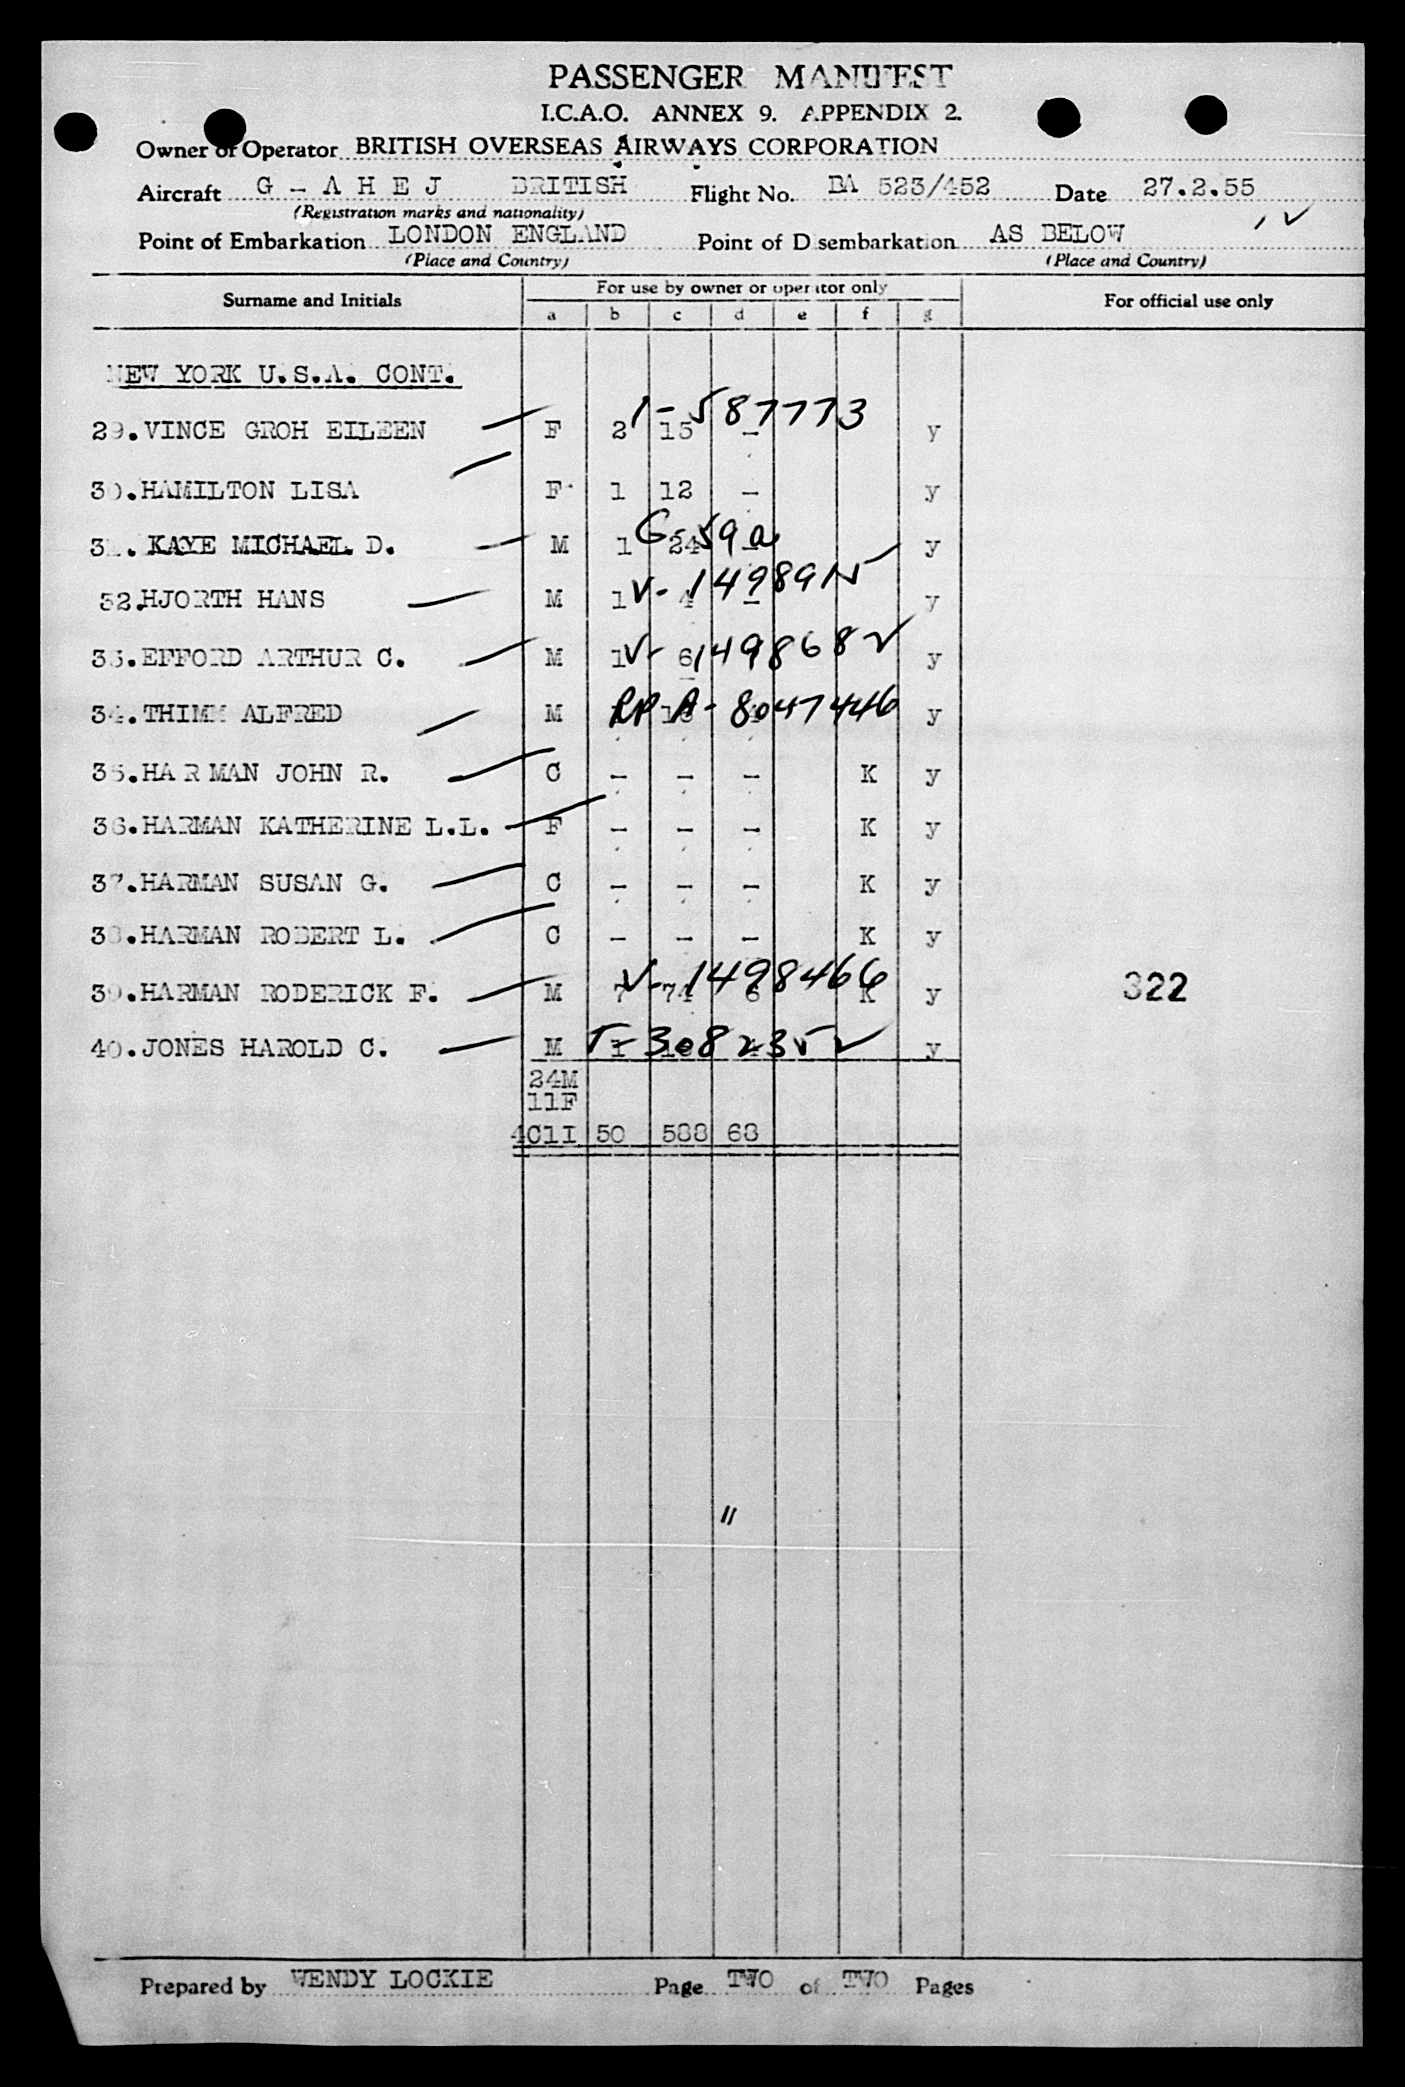 PASSENGER MANIFEST
I.C.A.O. ANNEX 9. APPENDIX 2.
Owner or Operator BRITISH OVERSEAS AIRWAYS CORPORATION
Aircraft G - A H E J BRITISH Flight No. BA 523/452 Date 27.2.55
(Registration marks and nationality)
Point of Embarkation LONDON ENGLAND Point of Disembarkation AS BELOW
(Place and Country) (Place and Country)
Surname and Initials For use by owner or operator only For official use only
a b c d e f g
NEW YORK U.S.A. CONT.
1-587773
29. VINCE GROH EILEEN F 2 15 - y
30. HAMILTON LISA F 1 12 - y
G-59a
31. KAYE MICHAEL D. M 1 24 - y
V-149891
32. HJORTH HANS M 1 4 - y
V-1498682
33. EFFORD ARTHUR C. M 1 6 y
RP A-8047446
34. THIMM ALFRED M y
35. HARMAN JOHN R. C - - - K y
36. HARMAN KATHERINE L.L. F - - - K y
37. HARMAN SUSAN G. C - - - K y
38. HARMAN ROBERT L. C - - - K y
V-1498466
39. HARMAN RODERICK F. M 7 74 6 K y
322
40. JONES HAROLD C. M 1 y
T-308235
24M
11F
4C1I 50 588 68
"
Prepared by WENDY LOCKIE Page TWO of TWO Pages